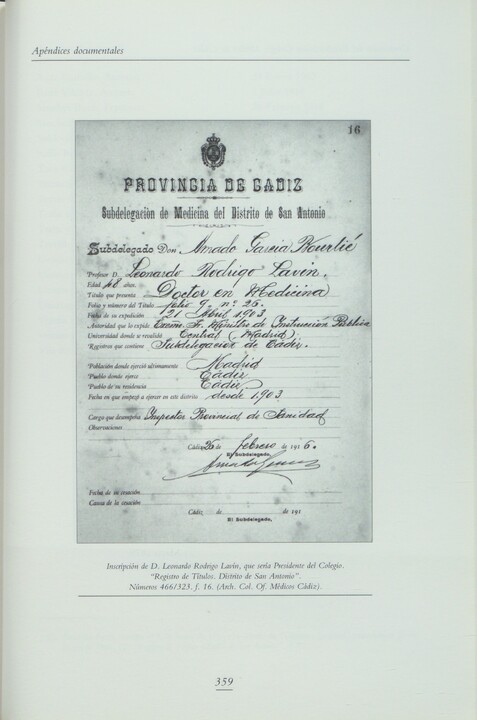 Apéndices documentales
16
PROVINCIA DE CADIZ
Subdelegación de Medicina del Distrito de San Antonio
Subdelegado Don Amado García Bourlié
Profesor D. Leonardo Rodrigo Lavin.
Edad 48 años.
Título que presenta Doctor en Medicina
Folio y número del Título folio 9. nº 26.
Fecha de su expedición 21 Abril 1903
Autoridad que lo expide Excmo. Sr. Ministro de Instrucción Pública
Universidad donde se revalidó Central (Madrid)
Registros que contiene Subdelegación de Cádiz.
Población donde ejerció últimamente Madrid
Pueblo donde ejerce Cádiz
Pueblo de su residencia Cádiz
Fecha en que empezó a ejercer en este distrito desde 1.903
Cargo que desempeña Inspector Provincial de Sanidad
Observaciones
Cádiz 26 de febrero de 1916.
El Subdelegado,
Fecha de su cesación
Causa de la cesación
Cádiz de de 191
El Subdelegado,
Inscripción de D. Leonardo Rodrigo Lavín, que sería Presidente del Colegio.
"Registro de Títulos. Distrito de San Antonio".
Números 466/323. f. 16. (Arch. Col. Of. Médicos Cádiz).
359